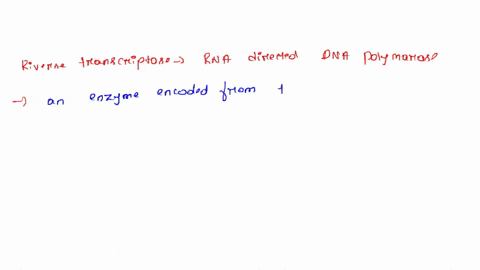 Riverse transcriptase → RNA directed DNA polymarase
→ an enzyme encoded from t